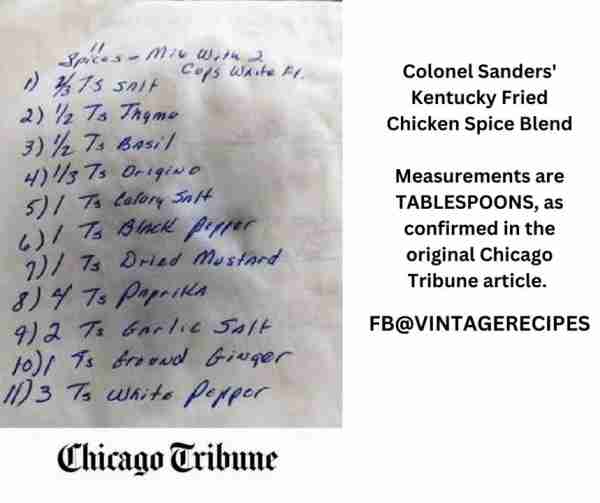 11
Spices - Mix With 2
Cups White Fl.
1) 2/3 Ts Salt
2) 1/2 Ts Thyme
3) 1/2 Ts Basil
4) 1/3 Ts Origino
5) 1 Ts Celory Salt
6) 1 Ts Black Pepper
7) 1 Ts Dried Mustard
8) 4 Ts Paprika
9) 2 Ts Garlic Salt
10) 1 Ts Ground Ginger
11) 3 Ts White Pepper
Chicago Tribune
Colonel Sanders'
Kentucky Fried
Chicken Spice Blend
Measurements are
TABLESPOONS, as
confirmed in the
original Chicago
Tribune article.
FB@VINTAGERECIPES